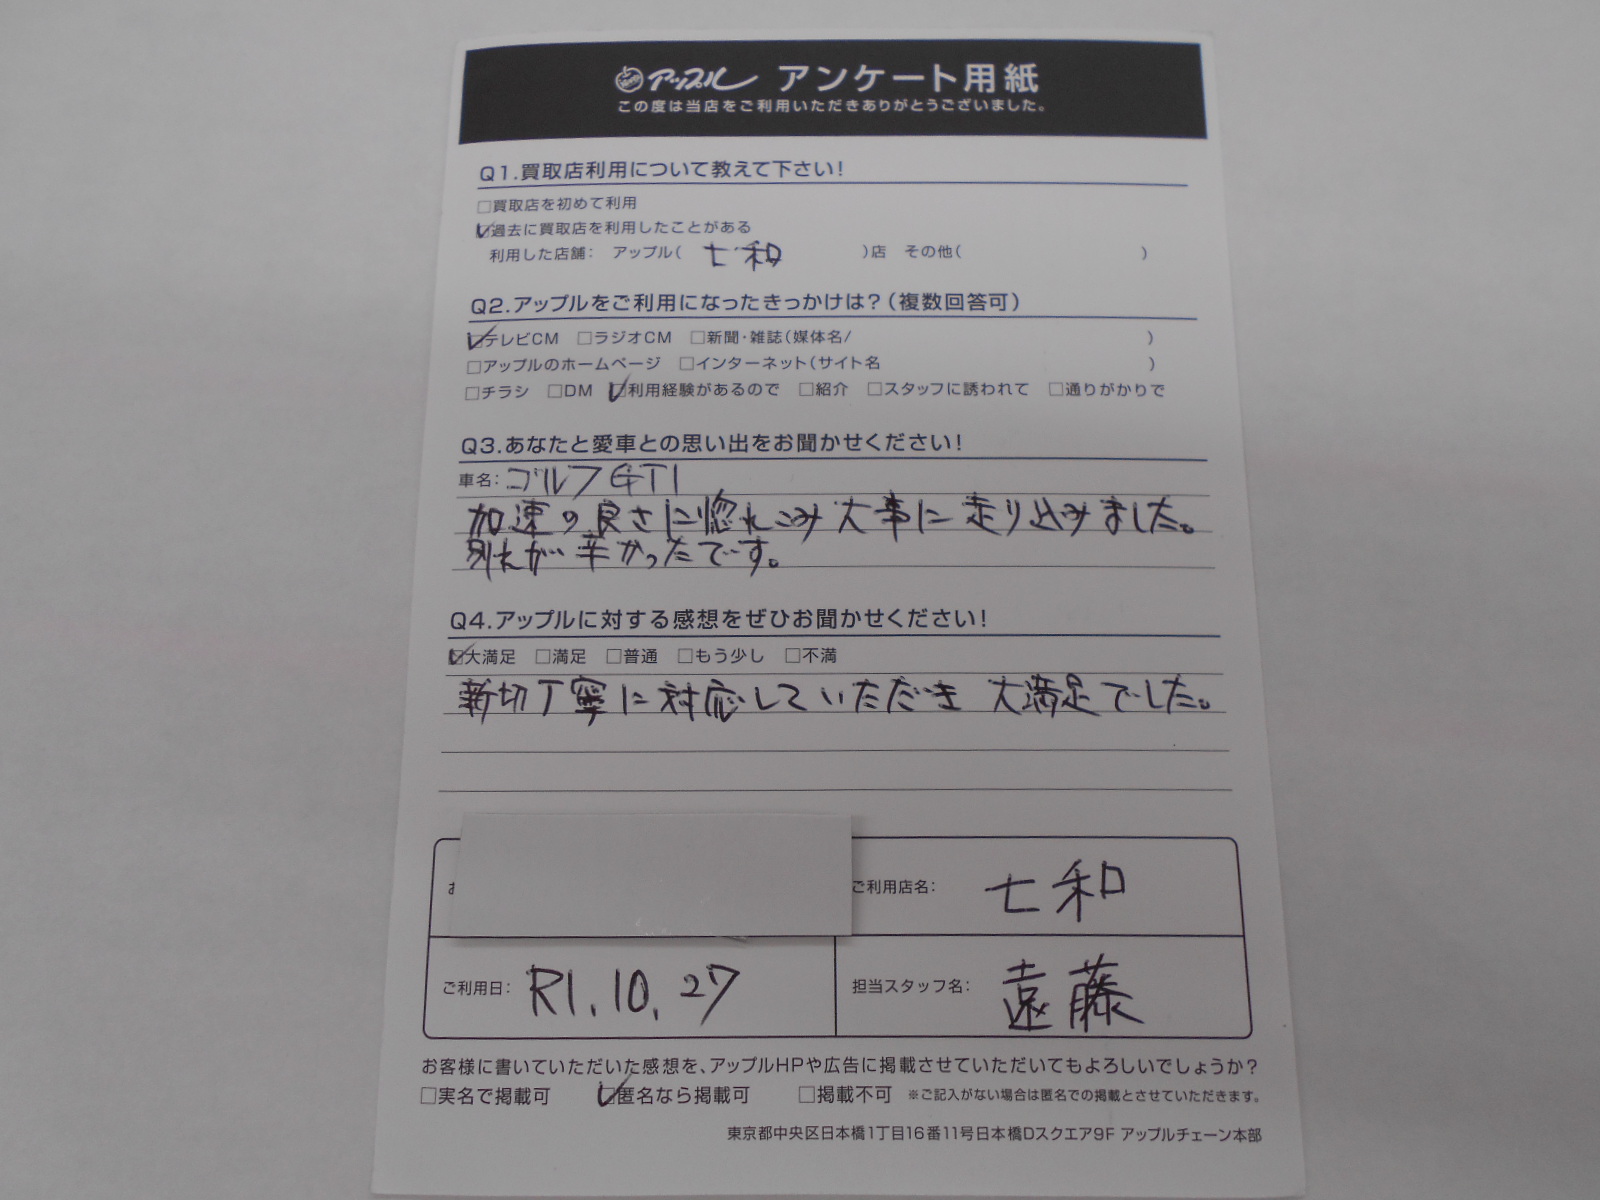 アップル アンケート用紙
この度は当店をご利用いただきありがとうございました。
Q1.買取店利用について教えて下さい!
□買取店を初めて利用
☑過去に買取店を利用したことがある
利用した店舗: アップル( 七和 )店 その他( )
Q2.アップルをご利用になったきっかけは?(複数回答可)
☑テレビCM □ラジオCM □新聞・雑誌(媒体名/ )
□アップルのホームページ □インターネット(サイト名 )
□チラシ □DM ☑利用経験があるので □紹介 □スタッフに誘われて □通りがかりで
Q3.あなたと愛車との思い出をお聞かせください!
車名: ゴルフGTI
加速の良さに惚れこみ大事に走り込みました。
別れが辛かったです。
Q4.アップルに対する感想をぜひお聞かせください!
☑大満足 □満足 □普通 □もう少し □不満
親切丁寧に対応していただき 大満足でした。
ご利用店名: 七和
ご利用日: R1.10.27 担当スタッフ名: 遠藤
お客様に書いていただいた感想を、アップルHPや広告に掲載させていただいてもよろしいでしょうか?
□実名で掲載可 ☑匿名なら掲載可 □掲載不可 ※ご記入がない場合は匿名での掲載とさせていただきます。
東京都中央区日本橋1丁目16番11号日本橋Dスクエア9F アップルチェーン本部